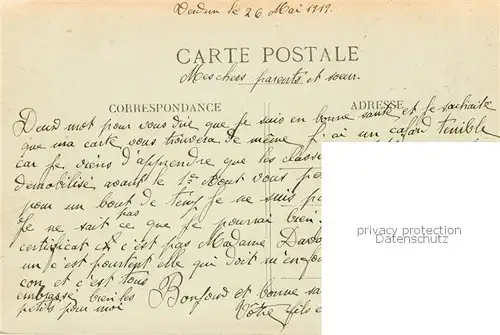 Verdun le 26 Mai 1919.
CARTE POSTALE
Mes chers parents et sœur.
CORRESPONDANCE
ADRESSE
Deux mot pour vous dire que je suis en bonne santé et je souhaite
que ma carte vous trouvera de même j'ai un cafard terrible
car je viens d'apprendre que les classe
démobilisé avant le 1er Aout vous
pour un bout de temp je ne suis
je ne sait pas ce que je pourrai bien
certificat c'est pas Madame
un c'est pourtant elle qui doit m'en
con et c'est tous
embrassé bien les
petits pour moi
Bonjour et bonne
Votre fils
privacy protection
www.oldthing.de